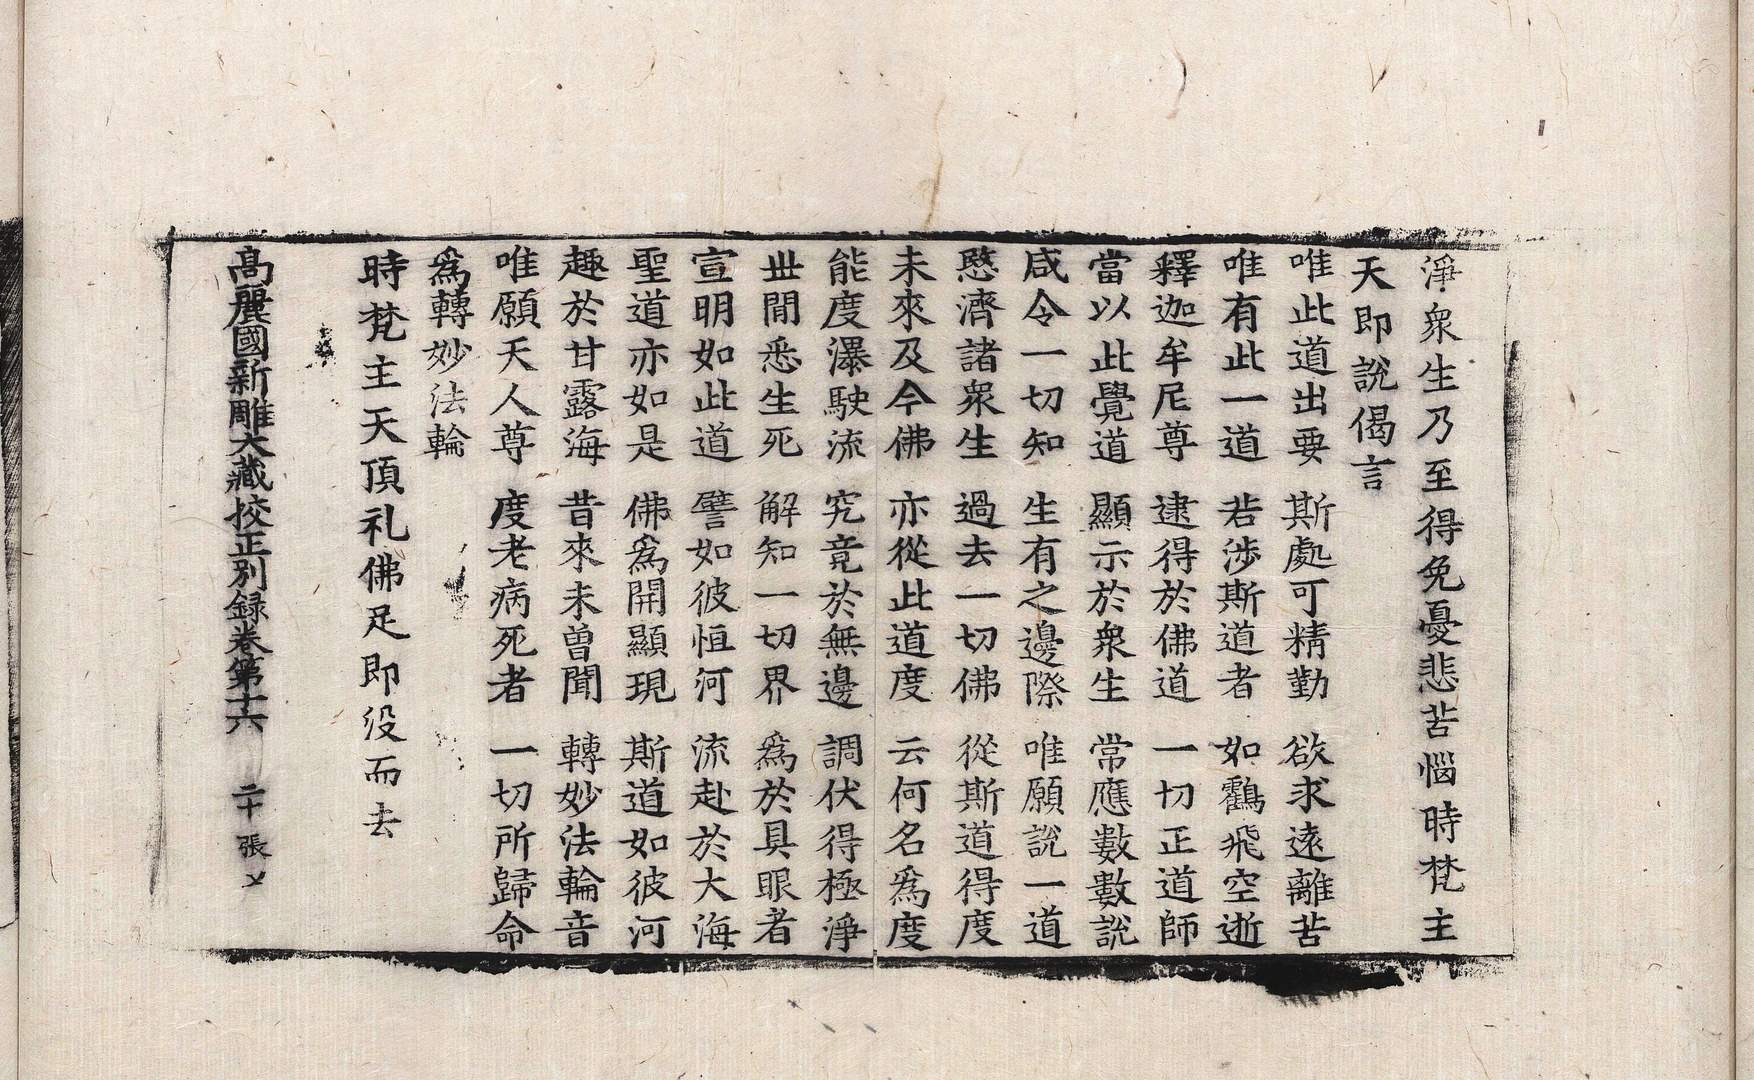 淨衆生乃至得免憂悲苦惱時梵主
天即說偈言
唯此道出要 斯處可精勤 欲求遠離苦
唯有此一道 若涉斯道者 如鸖飛空逝
釋迦牟尼尊 逮得於佛道 一切正道師
當以此覺道 顯示於衆生 常應數數說
咸令一切知 生有之邊際 唯願說一道
愍濟諸衆生 過去一切佛 從斯道得度
未來及今佛 亦從此道度 云何名爲度
能度瀑駛流 究竟於無邊 調伏得極淨
丗閒悉生死 解知一切界 爲於具眼者
宣明如此道 譬如彼恒河 流赴於大海
聖道亦如是 佛爲開顯現 斯道如彼河
趣於甘露海 昔來未曾聞 轉妙法輪音
唯願天人尊 度老病死者 一切所歸命
爲轉妙法輪
時梵主天頂礼佛足即没而去
高麗國新雕大藏挍正別録卷第十六 二十張